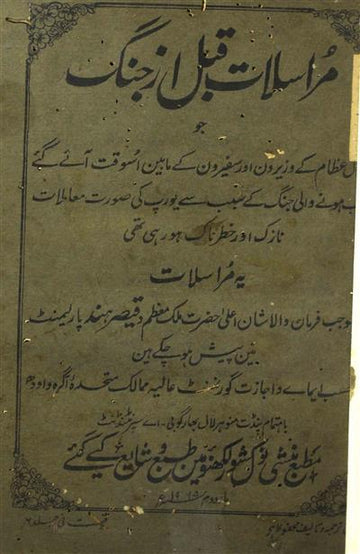 مُراسلات قبل از جنگ
جو
عظام کے وزیرون اور سفیرون کے مابین اسوقت آئے گئے
ہونے والی جنگ کے سبب سے یورپ کی صورت معاملات
نازک اور خطرناک ہو رہی تھی
یہ مُراسلات
فرمان والاشان اعلیٰ حضرت ملک معظم و قیصر ہند پارلیمنٹ
مین پیش ہو چکے ہین
ایماے و اجازت گورنمنٹ عالیہ ممالک متحدہ آگرہ و اودھ
باہتمام پنڈت منوہر لال بھارگو بی۔اے سپرنٹنڈنٹ
مطبع منشی نولکشور لکھنؤ مین طبع و شایع کیے گئے